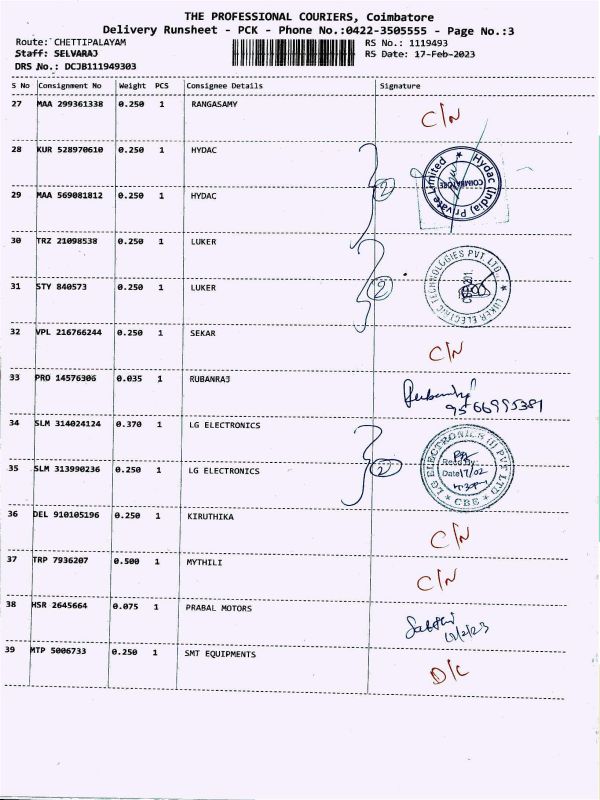 THE PROFESSIONAL COURIERS, Coimbatore
Delivery Runsheet - PCK - Phone No.:0422-3505555 - Page No.:3
Route: CHETTIPALAYAM
RS No.: 1119493
Staff: SELVARAJ
RS Date: 17-Feb-2023
DRS No.: DCJB111949303
S No Consignment No Weight PCS Consignee Details Signature
27 MAA 299361338 0.250 1 RANGASAMY C/N
28 KUR 528970610 0.250 1 HYDAC
Hydac (India) Private Limited
COIMBATORE
2
29 MAA 569081812 0.250 1 HYDAC
30 TRZ 21098538 0.250 1 LUKER
LUKER ELECTRIC TECHNOLOGIES PVT. LTD.
2
31 STY 840573 0.250 1 LUKER
32 VPL 216766244 0.250 1 SEKAR C/N
33 PRO 14576306 0.035 1 RUBANRAJ
9566995381
34 SLM 314024124 0.370 1 LG ELECTRONICS
LG ELECTRONICS (I) PVT LTD
Date 17/02
CBE
2
35 SLM 313990236 0.250 1 LG ELECTRONICS
36 DEL 910105196 0.250 1 KIRUTHIKA C/N
37 TRP 7936207 0.500 1 MYTHILI C/N
38 HSR 2645664 0.075 1 PRABAL MOTORS
39 MTP 5006733 0.250 1 SMT EQUIPMENTS D/L